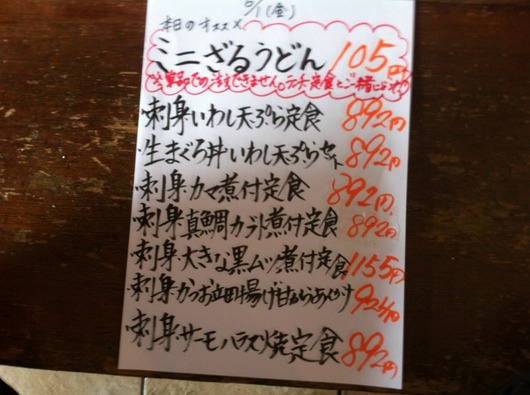 本日のオススメ
ミニざるうどん 105円
※単品でのご注文できません。ランチ定食とご一緒に
・刺身・いわし天ぷら定食 892円
・生まぐろ丼・いわし天ぷらセット 892円
・刺身・カマ煮付定食 892円
・刺身・真鯛カブト煮付定食 892円
・刺身・大きな黒ムツ煮付定食 1155円
・刺身・かつお立田揚げ甘からあんかけ
・刺身・サーモンハラス焼定食 892円